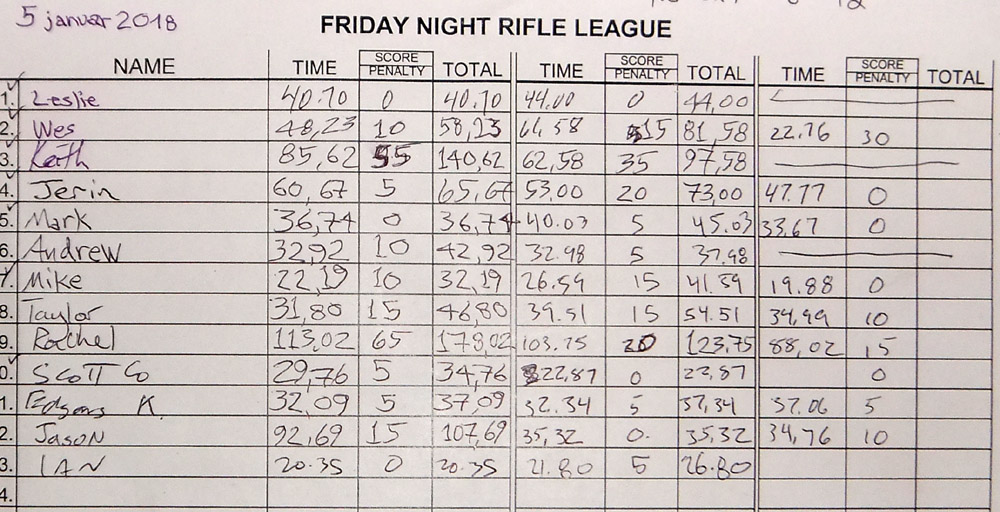 5 januar 2018
FRIDAY NIGHT RIFLE LEAGUE
NAME TIME SCORE PENALTY TOTAL TIME SCORE PENALTY TOTAL TIME SCORE PENALTY TOTAL
1. Leslie 40.70 0 40.70 44.00 0 44,00
2. Wes 48,23 10 58,23 66,58 15 81,58 22.76 30
3. Keith 85,62 55 140,62 62,58 35 97,58
4. Jerin 60,67 5 65,67 53.00 20 73,00 47.77 0
5. Mark 36,74 0 36,74 40.03 5 45.03 33.67 0
6. Andrew 32,92 10 42,92 32.98 5 37.98
7. Mike 22,19 10 32,19 26.59 15 41.59 19.88 0
8. Taylor 31,80 15 46,80 39.51 15 54.51 34,99 10
9. Rachel 113,02 65 178,02 103.75 20 123,75 88,02 15
0. SCOTT Co 29,76 5 34,76 22,87 0 22,87 0
1. K. 32,09 5 37,09 32.34 5 37,34 37.06 5
2. JASON 92,69 15 107,69 35,32 0. 35,32 34,76 10
3. IAN 20.35 0 20.35 21.80 5 26.80
4.